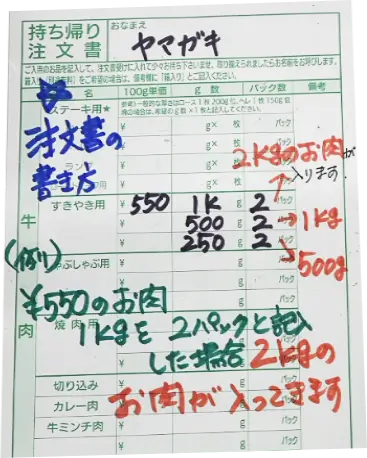 持ち帰り
注文書
おなまえ
ヤマガキ
ご入用のお品を記入して、注文書受けに入れて少々お待ち下さいませ。取り揃えられましたらお名前をお呼びします。
ご希望の場合は、備考欄に「箱入り」とご記入ください。
名 100g単価 g 数 パック数 備考
ステーキ用★
注文書の
書き方
¥ g× 枚 パック
2Kgのお肉が
入ります。
すきやき用 ¥ 550 1K g 2
500 g 2 → 1Kg
250 g 2 500g
しゃぶしゃぶ用
牛肉
(例)
¥550のお肉
焼肉用
1Kgを 2パックと記入
した場合 2Kgの
お肉が入ってきます
切り込み ¥ g パック
カレー肉 ¥ g パック
牛ミンチ肉 ¥ g パック